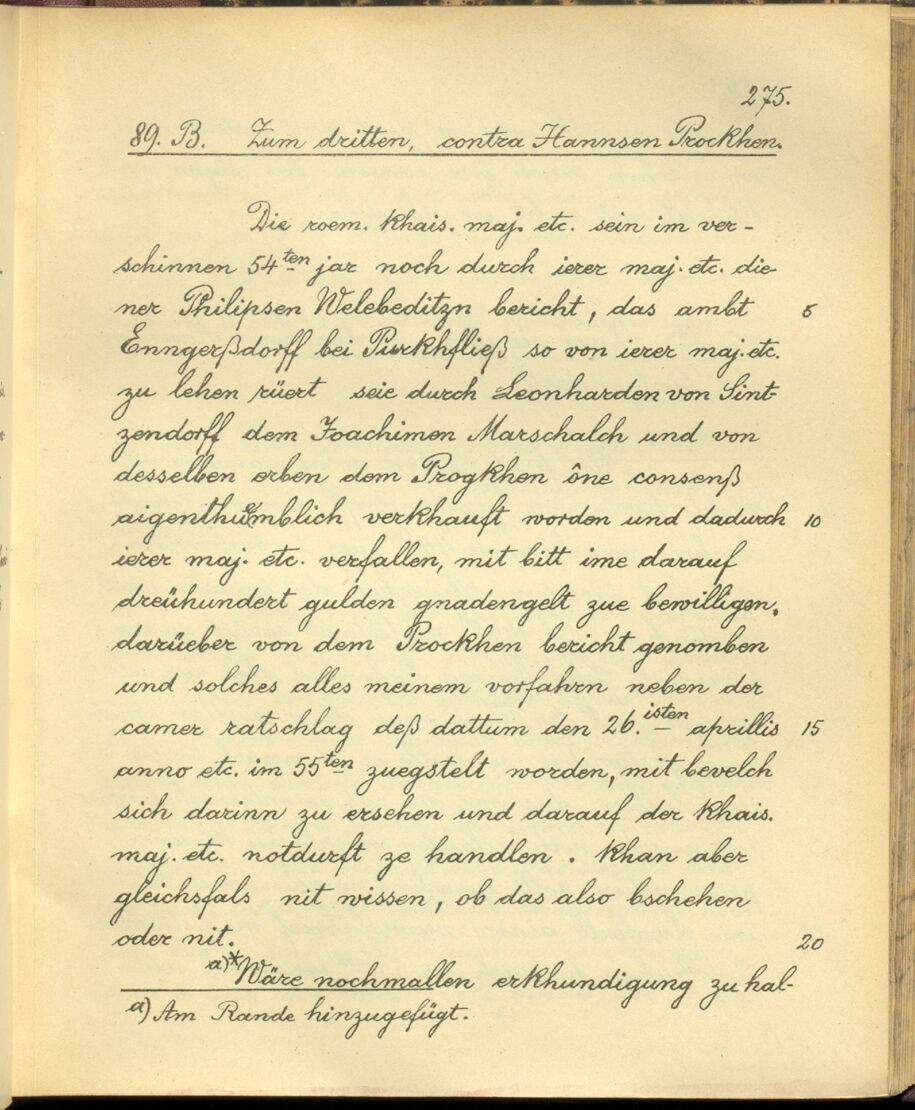 275.
89. B. Zum dritten, contra Hannsen Prockhen.
Die roem. khais. maj. etc. sein im ver-
schinnen 54ten jar noch durch ierer maj. etc. die-
ner Philipsen Welebeditzn bericht, das ambt 5
Enngerßdorff bei Purkhfließ so von ierer maj. etc.
zu lehen rüert seie durch Leonharden von Sint-
zendorff dem Joachimen Marschalch und von
desselben erben dem Progkhen ône consenß
aigenthuemblich verkhauft worden und dadurch 10
ierer maj. etc. verfallen, mit bitt ime darauf
dreühundert gulden gnadengelt zue bewilligen,
darüeber von dem Prockhen bericht genomben
und solches alles meinem vorfahrn neben der
camer ratschlag deß dattum den 26.isten aprillis 15
anno etc. im 55ten zuegstelt worden, mit bevelch
sich darinn zu ersehen und darauf der khais.
maj. etc. notdurft ze handlen. khan aber
gleichsfals nit wissen, ob das also bschehen
oder nit. 20
a)* Wäre nochmallen erkhundigung zu hal-
a) Am Rande hinzugefügt.